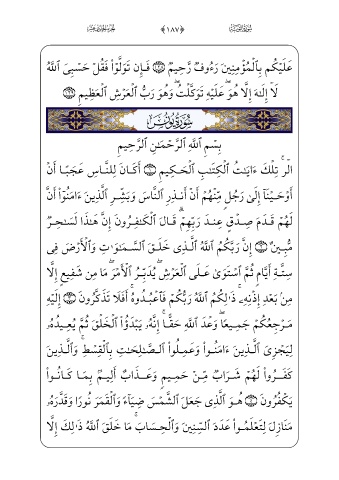 سُورَةُ التَّوۡبَةِ ﴿١٨٧﴾ الجزء الحادي عشر
عَلَيۡكُم بِٱلۡمُؤۡمِنِينَ رَءُوفٞ رَّحِيمٞ ۝١٢٨ فَإِن تَوَلَّوۡاْ فَقُلۡ حَسۡبِيَ ٱللَّهُ
لَآ إِلَٰهَ إِلَّا هُوَۖ عَلَيۡهِ تَوَكَّلۡتُۖ وَهُوَ رَبُّ ٱلۡعَرۡشِ ٱلۡعَظِيمِ ۝١٢٩
سُورَةُ يُونُسَ
بِسۡمِ ٱللَّهِ ٱلرَّحۡمَٰنِ ٱلرَّحِيمِ
الٓرۚ تِلۡكَ ءَايَٰتُ ٱلۡكِتَٰبِ ٱلۡحَكِيمِ ۝١ أَكَانَ لِلنَّاسِ عَجَبًا أَنۡ
أَوۡحَيۡنَآ إِلَىٰ رَجُلٖ مِّنۡهُمۡ أَنۡ أَنذِرِ ٱلنَّاسَ وَبَشِّرِ ٱلَّذِينَ ءَامَنُوٓاْ أَنَّ
لَهُمۡ قَدَمَ صِدۡقٍ عِندَ رَبِّهِمۡۗ قَالَ ٱلۡكَٰفِرُونَ إِنَّ هَٰذَا لَسَٰحِرٞ
مُّبِينٌ ۝٢ إِنَّ رَبَّكُمُ ٱللَّهُ ٱلَّذِي خَلَقَ ٱلسَّمَٰوَٰتِ وَٱلۡأَرۡضَ فِي
سِتَّةِ أَيَّامٖ ثُمَّ ٱسۡتَوَىٰ عَلَى ٱلۡعَرۡشِۖ يُدَبِّرُ ٱلۡأَمۡرَۖ مَا مِن شَفِيعٍ إِلَّا
مِنۢ بَعۡدِ إِذۡنِهِۦۚ ذَٰلِكُمُ ٱللَّهُ رَبُّكُمۡ فَٱعۡبُدُوهُۚ أَفَلَا تَذَكَّرُونَ ۝٣ إِلَيۡهِ
مَرۡجِعُكُمۡ جَمِيعٗاۖ وَعۡدَ ٱللَّهِ حَقًّاۚ إِنَّهُۥ يَبۡدَؤُاْ ٱلۡخَلۡقَ ثُمَّ يُعِيدُهُۥ
لِيَجۡزِيَ ٱلَّذِينَ ءَامَنُواْ وَعَمِلُواْ ٱلصَّٰلِحَٰتِ بِٱلۡقِسۡطِۚ وَٱلَّذِينَ
كَفَرُواْ لَهُمۡ شَرَابٞ مِّنۡ حَمِيمٖ وَعَذَابٌ أَلِيمُۢ بِمَا كَانُواْ
يَكۡفُرُونَ ۝٤ هُوَ ٱلَّذِي جَعَلَ ٱلشَّمۡسَ ضِيَآءٗ وَٱلۡقَمَرَ نُورٗا وَقَدَّرَهُۥ
مَنَازِلَ لِتَعۡلَمُواْ عَدَدَ ٱلسِّنِينَ وَٱلۡحِسَابَۚ مَا خَلَقَ ٱللَّهُ ذَٰلِكَ إِلَّا